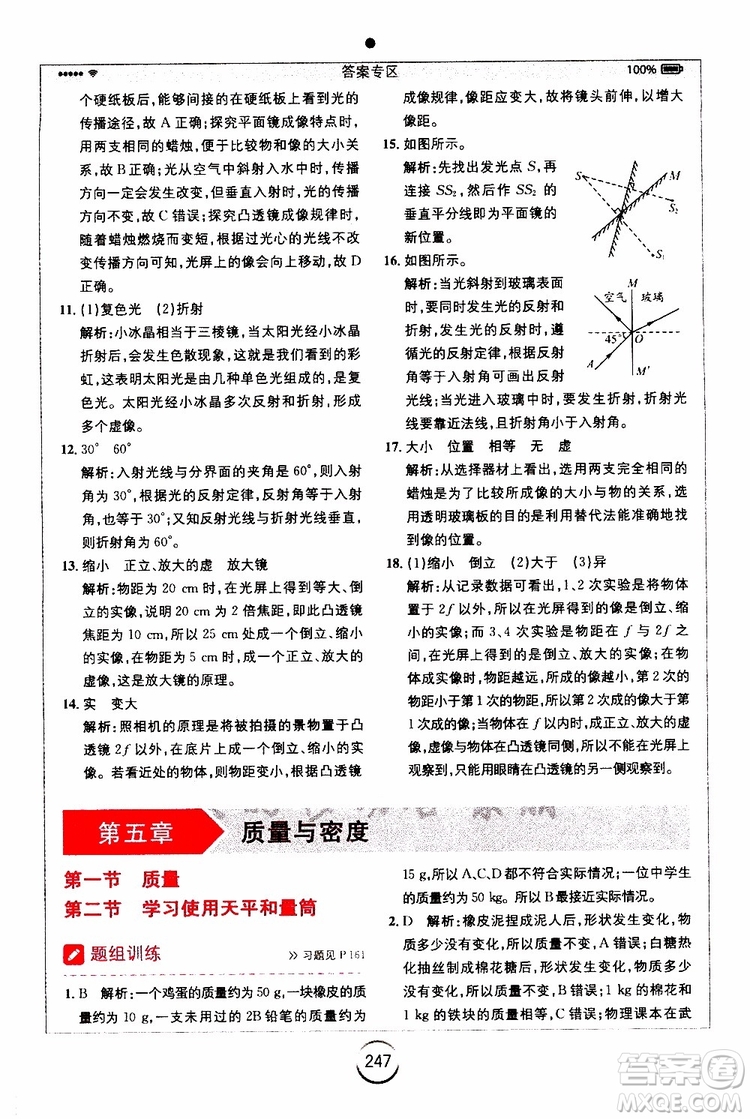 答案专区
100%
个硬纸板后，能够间接的在硬纸板上看出光的
传播途径，故 A 正确；探究平面镜成像特点时，
用两支相同的蜡烛，便于比较像和物的大小关
系，故 B 正确；光从空气中斜射入水中时，传播
方向一定会发生改变，但垂直入射时，光的传播
方向不变，故 C 错误；探究凸透镜成像规律时，
随着蜡烛燃烧而变短，根据过光心的光线不改
变传播方向可知，光屏上的像会向上移，故 D
正确。
11. (1)复色光 (2)折射
解析：小冰晶相当于三棱镜，当太阳光经小冰晶
折射后会发生色散现象，我们就能看到美丽的彩
虹，这表明太阳光是由几种单色光组成的，是复
色光。太阳光经小冰晶多次反射和折射后会形成
多个虚像。
12. 30° 60°
解析：入射光线与分界面的夹角是 60°，则入射
角为 30°，根据光的反射定律，反射角等于入射
角，也等于 30°；又知反射光线与折射光线垂直，
则折射角为 60°。
13. 缩小 正立、放大的虚 放大镜
解析：物距为 20 cm 时，在光屏上得到等大、倒
立的实像，说明 20 cm 为 2 倍焦距，此凸透镜的
焦距为 10 cm，所以大于 20 cm 成倒立、缩小的
实像。在物距为 5 cm 时，成一个正立、放大的
虚像，这是放大镜的原理。
14. 实 变大
解析：照相机的原理是将被拍摄的景物置于凸
透镜 2f 以外，在底片上成一个倒立、缩小的实
像。若看近处的物体，则物距变小，根据凸透镜
成像规律，像距应变大，故将镜头前伸，以增大
像距。
15. 如图所示。
解析：先找出发光点 S，再
连接 SS₂，然后作 SS₂ 的
垂直平分线即是平面镜的
新位置。
S
M
S₂
S₁
16. 如图所示。
解析：当光斜射到玻璃表
面时，会发生光的反射和
折射，其中光的反射应遵
循光的反射定律，根据反
射角等于入射角可画反射
光线；当光进入玻璃中时要发生折射，折射光线
要靠近法线，且折射角小于入射角。
M
空气
玻璃
45°
O
A
M′
17. 大小 位置 相等 无 虚
解析：从选择器材上看出，选用两支完全相同的
蜡烛是为了比较所成像的大小与物的关系，选
用透明玻璃板的目的是利用替代法能准确地找
到像的位置。
18. (1)缩小 倒立 (2)大于 (3)异
解析：从记录数据可看出，1、2 次实验是将物体
放在 2f 以外，光屏上得到的都是倒立、缩小的
实像。而 3、4 次实验物距在 f 与 2f 之间，
在光屏上得到的是倒立、放大的实像。在物
体成实像时，物距越远，所成的像越小，第 2 次的
物距小于第 1 次的物距，第 2 次成的像大于第
1 次的像。当物距在 f 以内时，成正立、放大的
虚像，此像与物体在凸透镜同侧，所以在光屏上
观察不到，只能用眼睛在凸透镜另一侧观察到。
第五章 质量与密度
第一节 质量
第二节 学习使用天平和量筒
题组训练
习题见 P 161
1. B 解析：一个鸡蛋的质量约为 50 g，一块橡皮的质
量约为 10 g，一支未用过的 2B 铅笔的质量约为
15 g，所以 A、C、D 都不符合实际情况；一位中学生
的质量约为 50 kg，所以 B 最接近实际情况。
2. D 解析：橡皮泥捏成泥人后，形状发生变化，物质
多少没有变化，所以质量不变，A 错误；白糖热
化抽丝制成棉花糖后，形状发生变化，物质多少
没有变化，所以质量不变，B 错误；1 kg 的棉花和
1 kg 的铁块的质量相同，C 错误；物理课本在武
247
答案圈
MXQE.COM